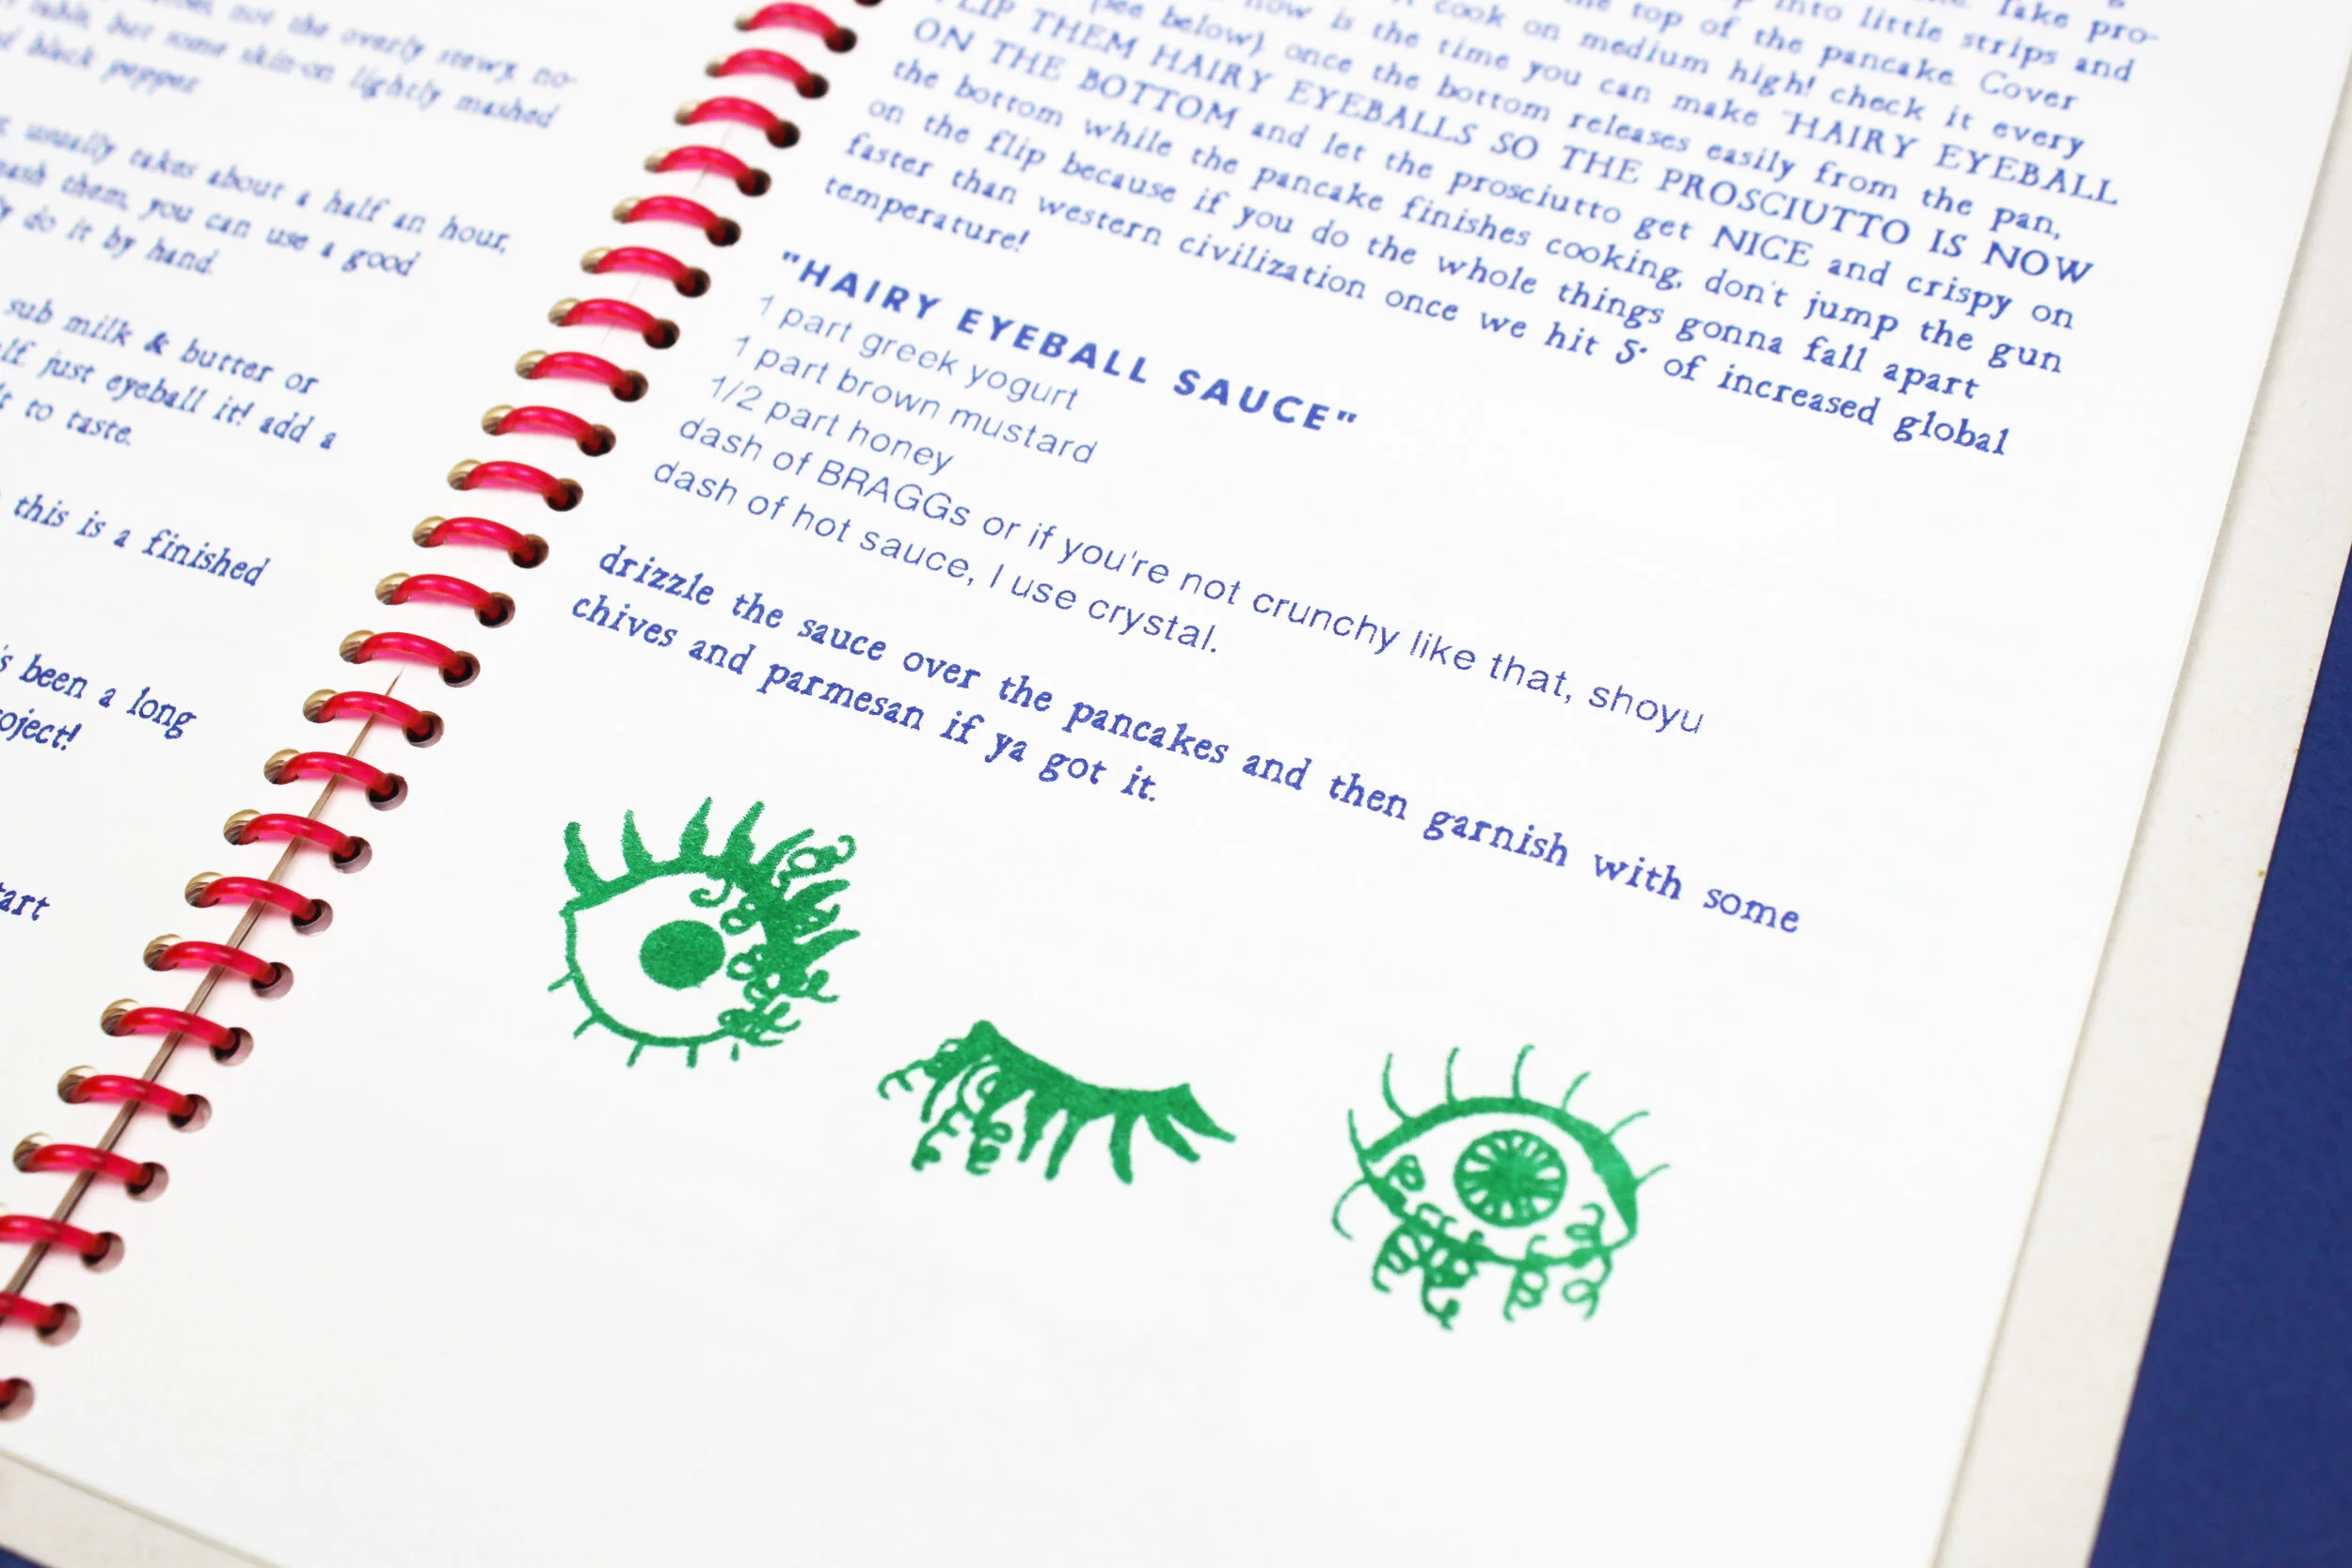 not the overly stewy, no-
table, but some skin-on lightly mashed
black pepper
usually takes about a half an hour,
mash them, you can use a good
do it by hand.
sub milk & butter or
just eyeball it! add a
to taste.
this is a finished
been a long
Take pro-
into little strips and
the top of the pancake. Cover
cook on medium high! check it every
now is the time you can make "HAIRY EYEBALL
(see below). once the bottom releases easily from the pan,
FLIP THEM HAIRY EYEBALLS SO THE PROSCIUTTO IS NOW
ON THE BOTTOM and let the prosciutto get NICE and crispy on
the bottom while the pancake finishes cooking, don't jump the gun
on the flip because if you do the whole things gonna fall apart
faster than western civilization once we hit 5° of increased global
temperature!
"HAIRY EYEBALL SAUCE"
1 part greek yogurt
1 part brown mustard
1/2 part honey
dash of BRAGGs or if you're not crunchy like that, shoyu
dash of hot sauce, I use crystal.
drizzle the sauce over the pancakes and then garnish with some
chives and parmesan if ya got it.